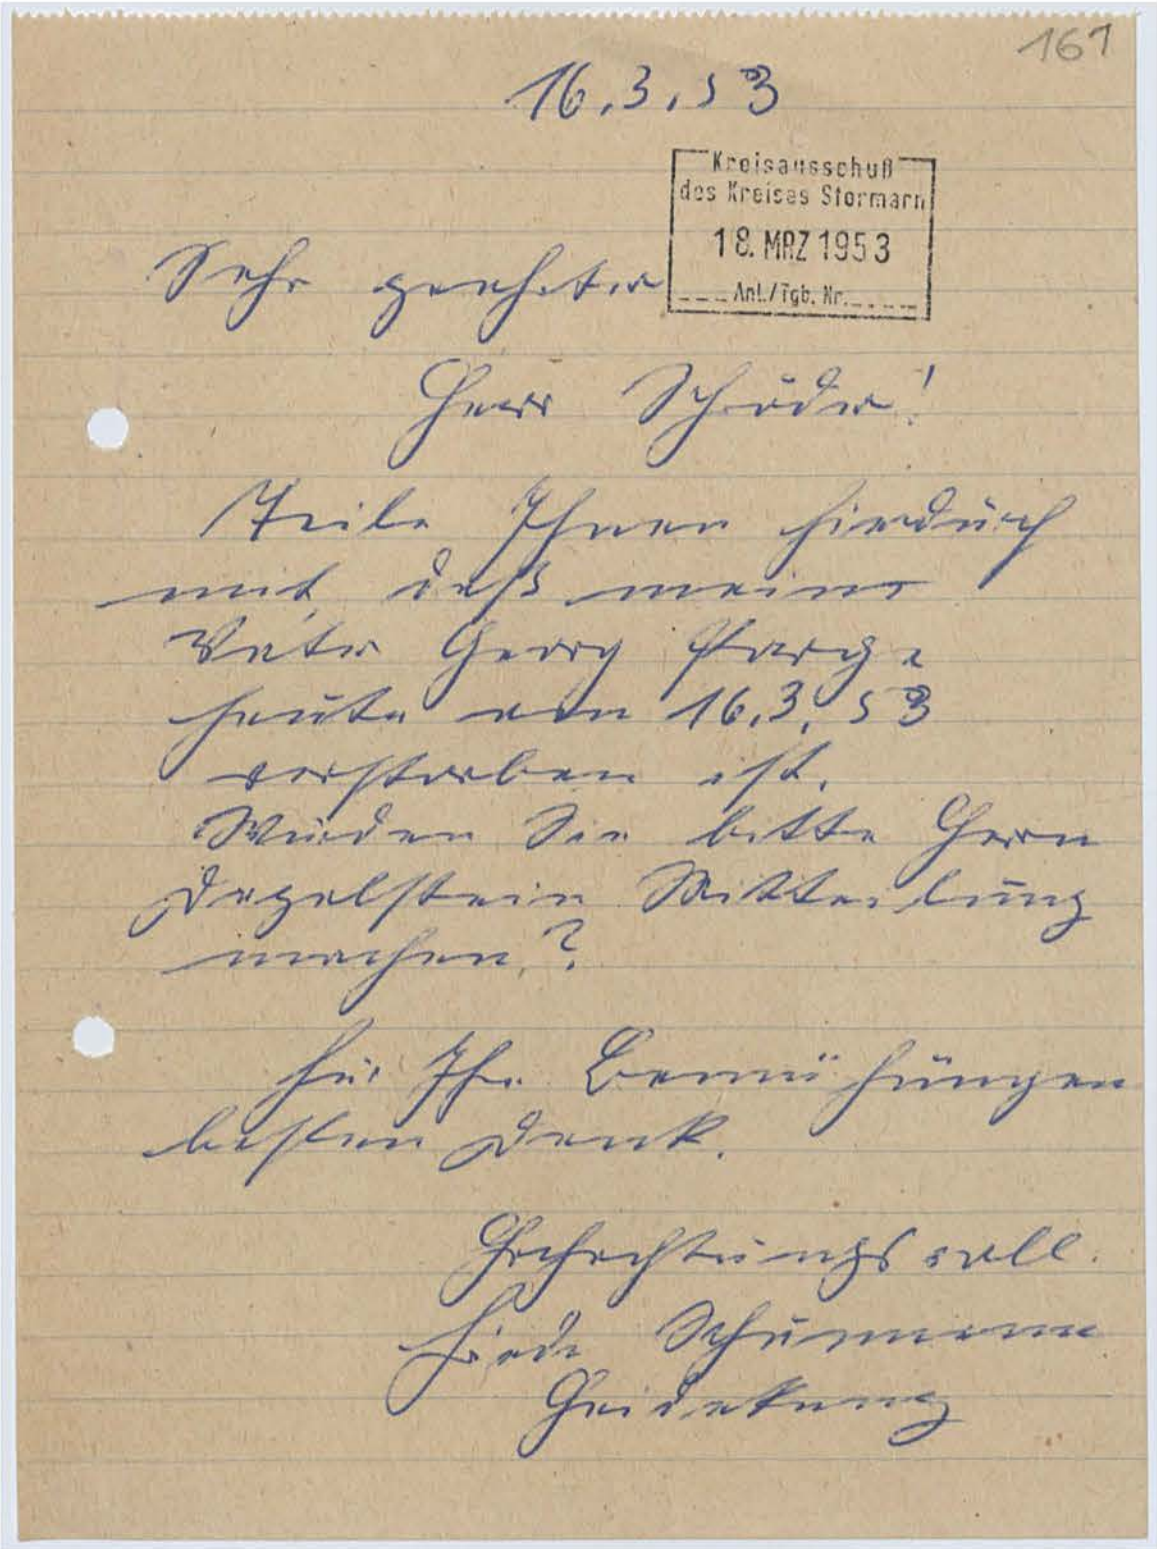 161
16.3.53
Kreisausschuß
des Kreises Stormarn
18. MRZ 1953
Anl./Tgb. Nr.
Sehr geehrter
Herr Schröder!
Teile Ihnen hierdurch
mit, daß meine
Vater Georg
heute am 16.3.53
verstorben ist.
Würden Sie bitte Herrn
Mitteilung
machen?
Für Ihre Bemühungen
besten Dank.
Hochachtungsvoll.
Schümann